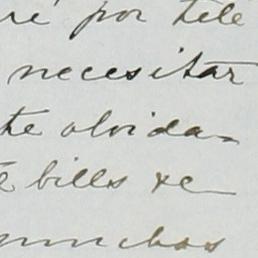 ré por telé
necesitar
te olvida=
e bills &c
munchos